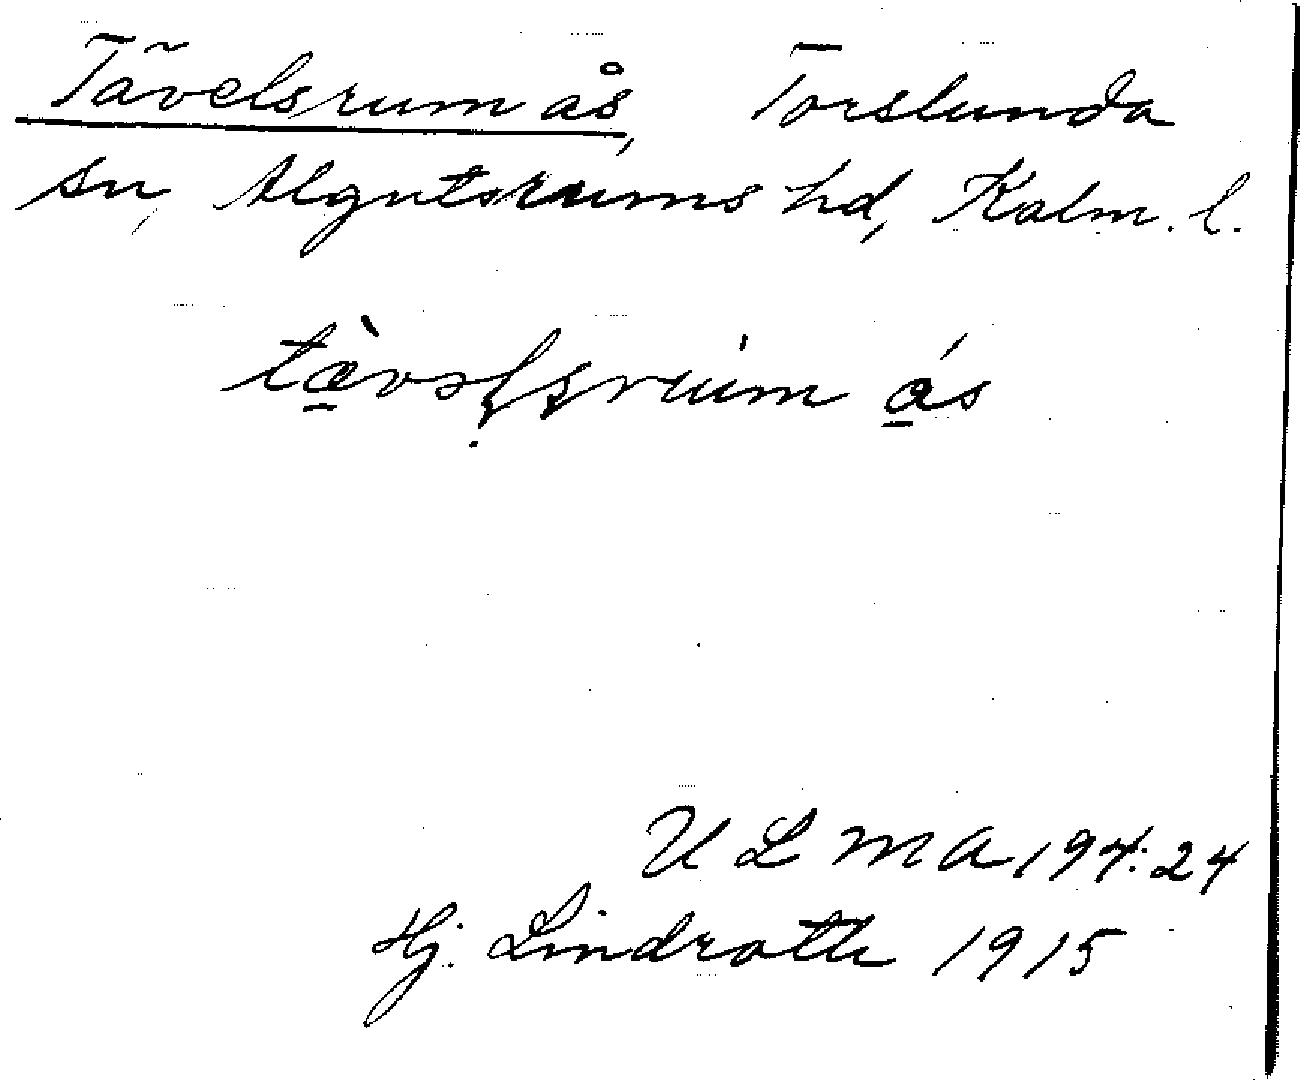 Tävelsrum ås, Torslunda
sn, Algutsrums hd, Kalm. l.
ULMA 194:24
Hj. Lindroth 1915